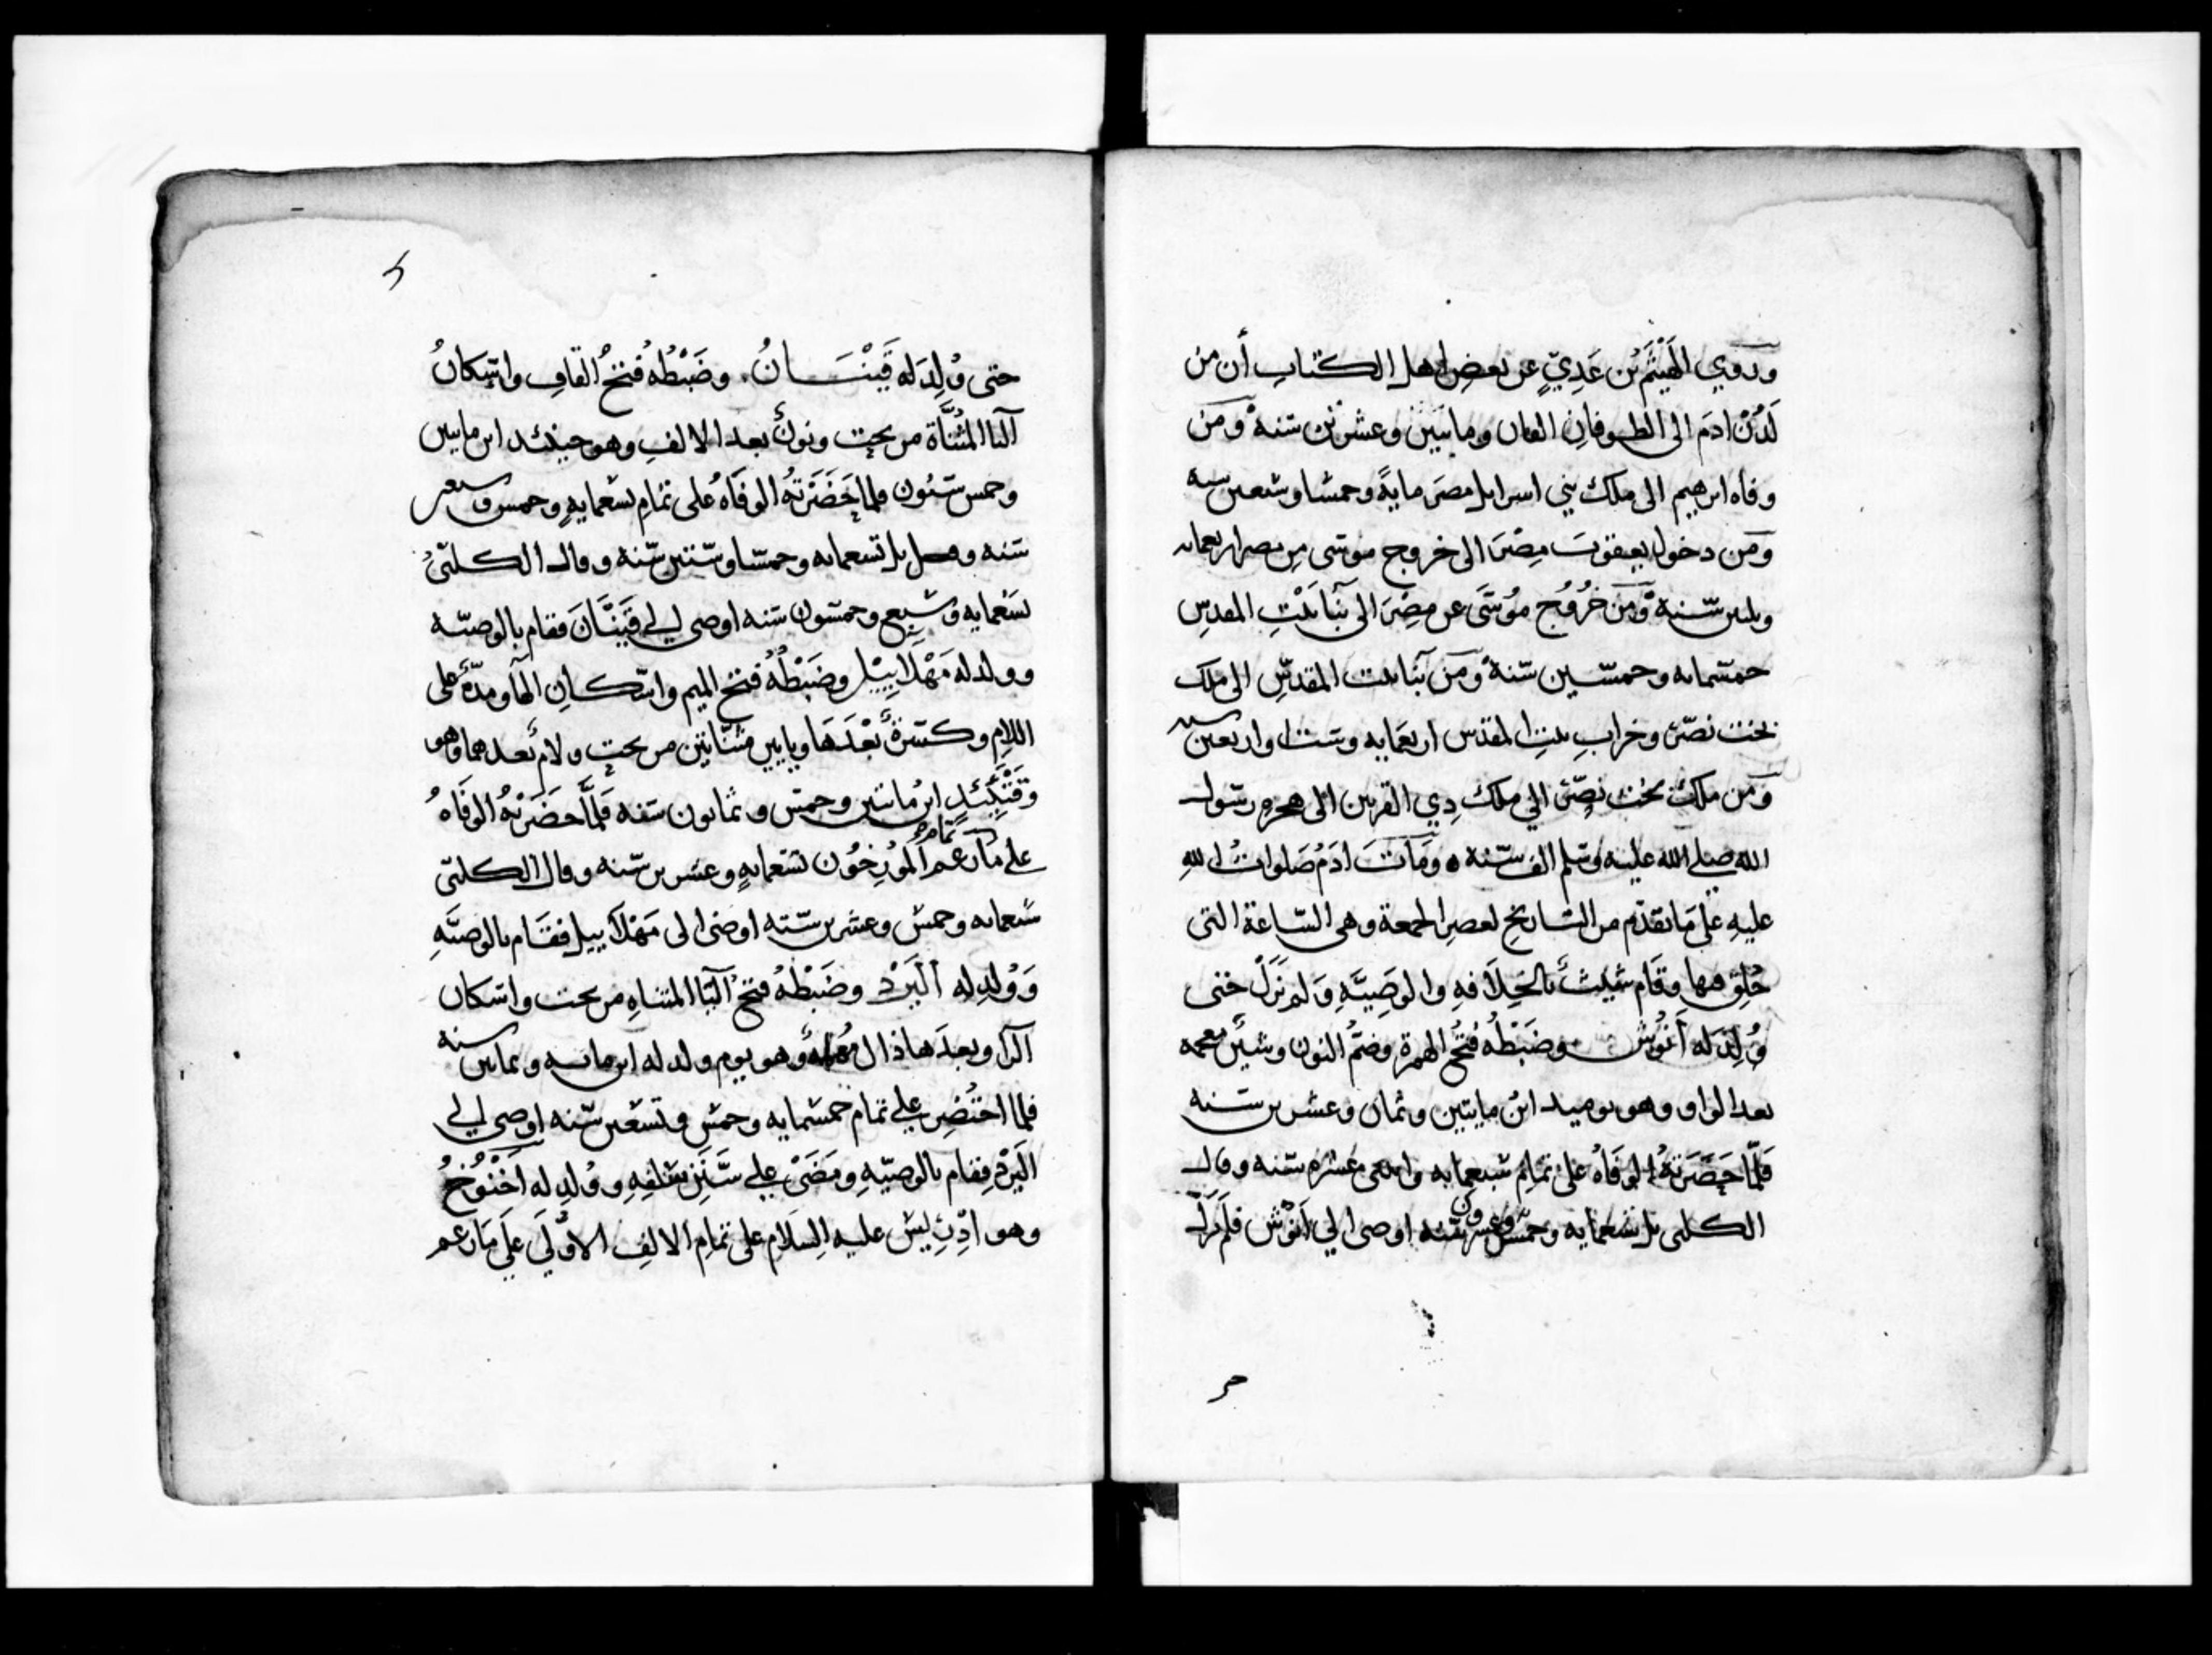 وروي الهَيْثَمُ بْن عَدِيٍّ عن بعض اهل الكتاب أن من
لَدُنْ ادمَ الى الطوفانِ الفان ومايتَيْنِ وعشرين سنة ومن
وفاه ابرهيم الى ملك بني اسرايل مصرَ مايةً وخمسًا وسبعين سنه
ومن دخول يعقوبَ مِصْرَ الى خروج موسى من مصر اربعمايه
وثلثين سنة ومن خُرُوج مُوسَى عن مِصْرَ الى بنآ بَيْتِ المقدسِ
خمسمايه وخمسين سنة ومن بنآ بيت المقدّسِ الى ملك
بخت نصّر وخراب بيتِ المقدس اربعمايه وستا واربعين سنه
ومن ملك بخت نصّر الي ملك ذِي القرنين الى هجرهِ رسول
الله صلي الله عليه وسلم الف سنه ومَاتَ ادَمُ صَلوات الله
عليهِ عَلى مَا تقدّم من التاريخ لعصرِ الجمعة وهى السّاعة التى
خُلِق فيها وقَام شيث بالخِلاَفهِ والوَصِيَّهِ وَلم نَزَلْ حتى
وُلِدَ له أَنوُش وضَبْطُه فتحُ الهمزة وضمُّ النون وشين معجمه
بعد الواو وهو يوميد ابن مايتين وثمان وعشرين سنه
فلمّا حَضَرَتهُ الوَفَاهُ على تمام سبعمايه واثنتى عشره سنه وقال
الكلبى بل تسعمايه وخمس وعشرون سنه اوصى الي اَنوُش فلم يَزَلْ
حتى وُلِدَ له قَيْنَانُ. وضَبْطُه فتحُ القافِ واسكانُ
اليا المُثنَّاة من تحت ونونٌ بعد الالفِ وهو حينئد ابن مايتين
وخمس سنون فلما حَضَرَتهُ الوفَاهُ على تمام تسعمايهٍ وخمس وستين
سَنه وقيل بل تسعمايه وخمسًا وستين سنه وقال الكلبّىُ
تسعمايه وسَبع وخمسون سَنه اوصى الي قَيْنَانَ فقام بالوصيّه
وولد له مَهْلاَييْل وضَبْطُهُ فتح الميم واسْكانِ الهآ ومدّةٌ على
اللامِ وكَسْرةٌ بَعْدَهَا ويايين مثنّاتين من تحت ولامٌ بعدهما وهو
وَقْتَئِذٍ ابنُ مايتين وخمس وثمانون سَنه فلمَّا حَضَرَتْهُ الوَفَاهُ
على تمام ما زعم المُوَرِخُون تسعمايهٍ وعشرين سنه وقال الكلبّى
تسعمايه وخمسٌ وعشرين سنه اوصَى الى مَهْلاَييل فقَام بالوصيَّهِ
وَوُلدِ له اَليَرْد وضَبْطُهُ فتحُ اليآ المثناهِ من تحت واسكان
الرا وبعدَها ذال مُهملهٌ وهو يوم ولد له ابن مايه وثمانين سنة
فلما احْتُضِر علي تمام خمسمايه وخمسٍ وتسعين سنه اوصى الي
اليَرْد فقام بالوصيّهِ ومَضَىْ علي سَنَنِ سَلفِهِ ووُلدِ له اَخْنُوخُ
وهو ادِْرِيسُ عليه السَلام على تمام الالفِ الاُولَى علي مَا زعم